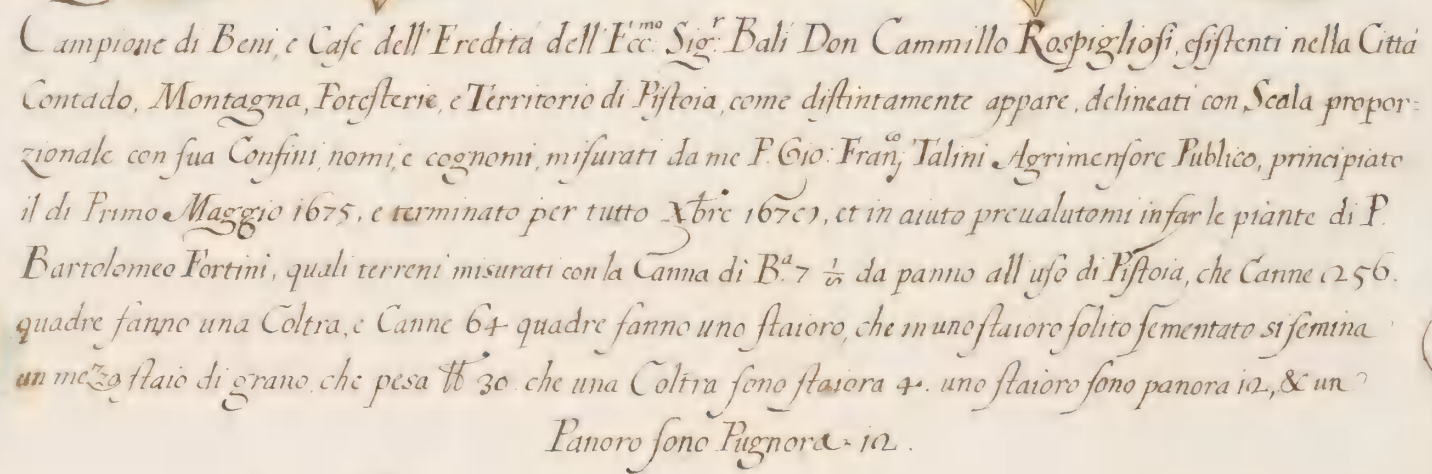 Campione di Beni, e Case dell'Eredità dell'Ecc.mo Sig.r Bali Don Cammillo Rospigliosi, esistenti nella Città
Contado, Montagna, Potesterie, e Territorio di Pistoia, come distintamente appare, delineati con Scala propor=
zionale con sua Confini, nomi, e cognomi, misurati da me P. Gio: Fran.co Talini Agrimensore Publico, principiato
il di Primo Maggio 1675, e terminato per tutto Xbre, et in aiuto preualutomi in far le piante di P.
Bartolomeo Fortini, quali terreni misurati con la Canna di B.a 7 da panno all'uso di Pistoia, che Canne 256.
quadre fanno una Coltra, e Canne 64 quadre fanno uno staioro, che in uno staioro solito sementato si semina
un mezzo staio di grano, che pesa lb 30. che una Coltra sono staiora 4. uno staioro sono panora 12, & un
Panoro sono Pugnora = 12.